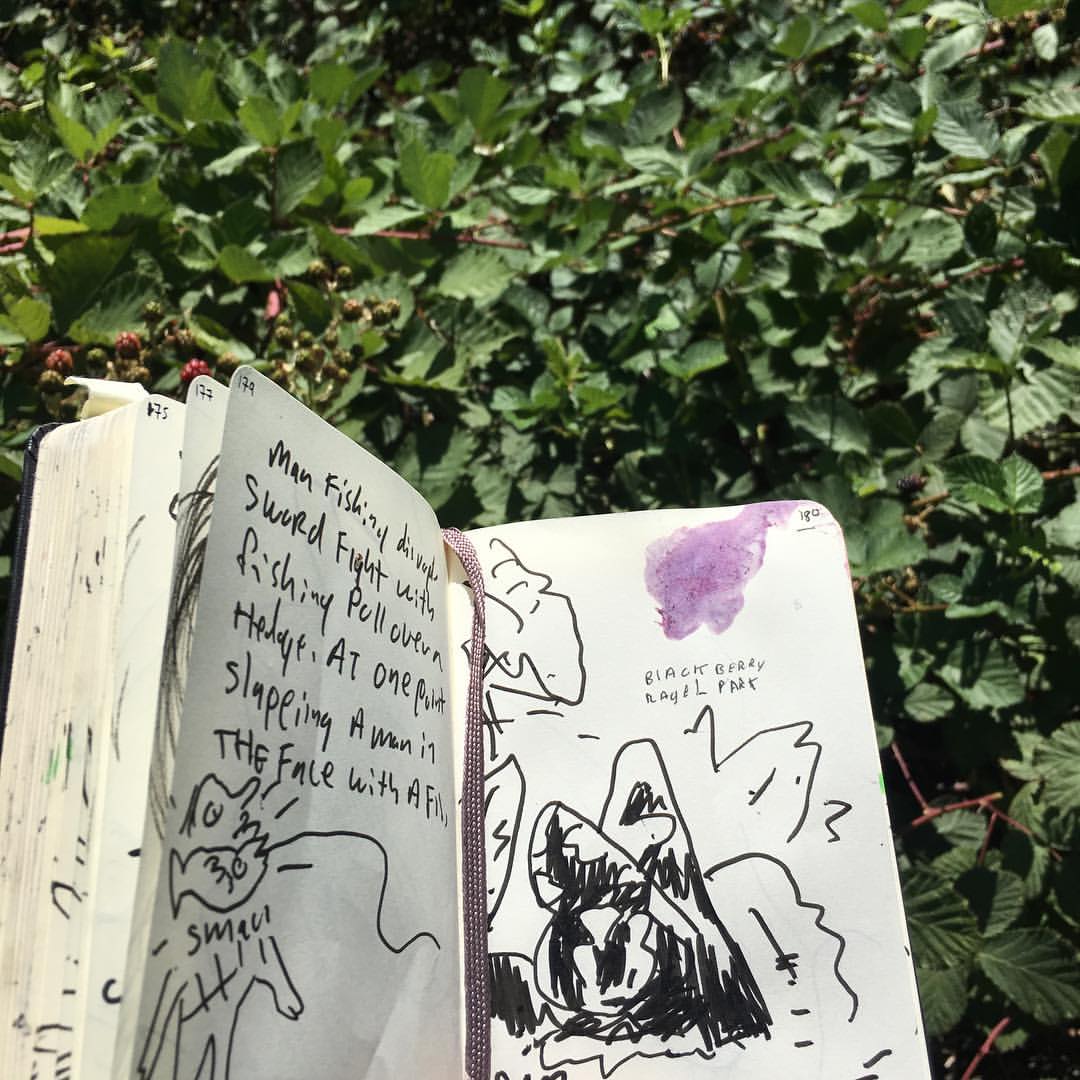 175
177
179
Man Fishing
Sword Fight with
fishing Poll over a
Hedge. AT one point
slapping A man in
THE Face with A Fi
180
BLACKBERRY
PARK